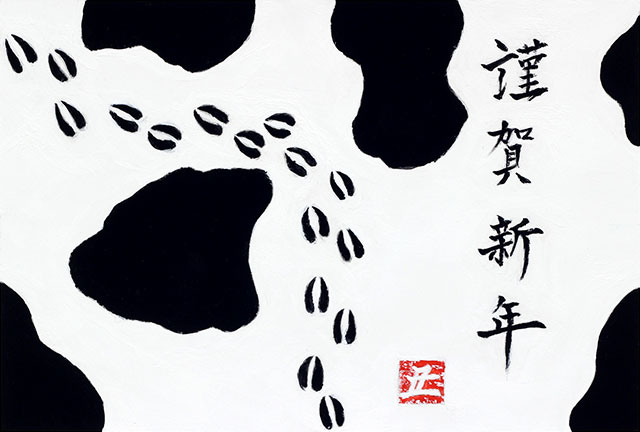 謹賀新年
丑